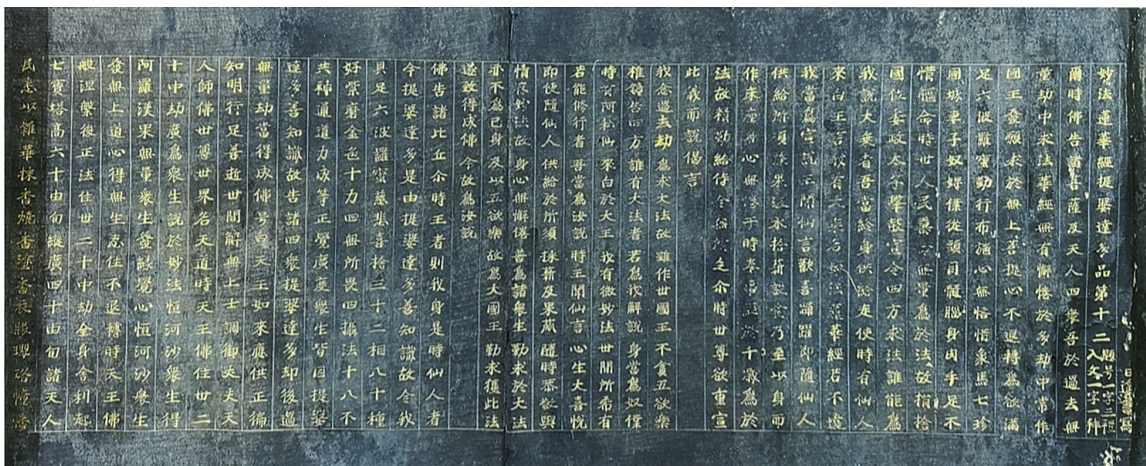 妙法蓮華經提婆達多品第十二
題号一字三礼
入文一字一拜
爾時佛告諸菩薩及天人四眾吾於過去無
量劫中求法華經無有懈惓於多劫中常作
國王發願求於無上菩提心不退轉為欲滿
足六波羅蜜勤行布施心無悋惜象馬七珍
國城妻子奴婢僕從頭目髓腦身肉手足不
惜軀命時世人民壽命無量為於法故捐捨
國位委政太子擊鼓宣令四方求法誰能為
我說大乘者吾當終身供給走使時有仙人
來白王言我有大乘名妙法蓮華經若不違
我當為宣說王聞仙言歡喜踊躍即隨仙人
供給所須採果汲水拾薪設食乃至以身而
作床座身心無惓于時奉事經於千歲為於
法故精勤給侍令無所乏尒時世尊欲重宣
此義而說偈言
我念過去劫為求大法故雖作世國王不貪五欲樂
椎鐘告四方誰有大法者若為我解說身當為奴僕
時有阿私仙來白於大王我有微妙法世間所希有
若能修行者吾當為汝說時王聞仙言心生大喜悅
即便隨仙人供給於所須採薪及果蓏隨時恭敬與
情存妙法故身心無懈惓普為諸眾生勤求於大法
亦不為己身及以五欲樂故為大國王勤求獲此法
遂致得成佛今故為汝說
佛告諸比丘尒時王者則我身是時仙人者
今提婆達多是由提婆達多善知識故令我
具足六波羅蜜慈悲喜捨三十二相八十種
好紫磨金色十力四無所畏四攝法十八不
共神通道力成等正覺廣度眾生皆因提婆
達多善知識故告諸四眾提婆達多却後過
無量劫當得成佛号曰天王如來應供正徧
知明行足善逝世間解無上士調御丈夫天
人師佛世尊世界名天道時天王佛住世二
十中劫廣為眾生說於妙法恒河沙眾生得
阿羅漢果無量眾生發緣覺心恒河沙眾生
發無上道心得無生忍住不退轉時天王佛
般涅槃後正法住世二十中劫全身舍利起
七寶塔高六十由旬縱廣四十由旬諸天人
民悉以雜華抹香燒香塗香衣服瓔珞幢幡